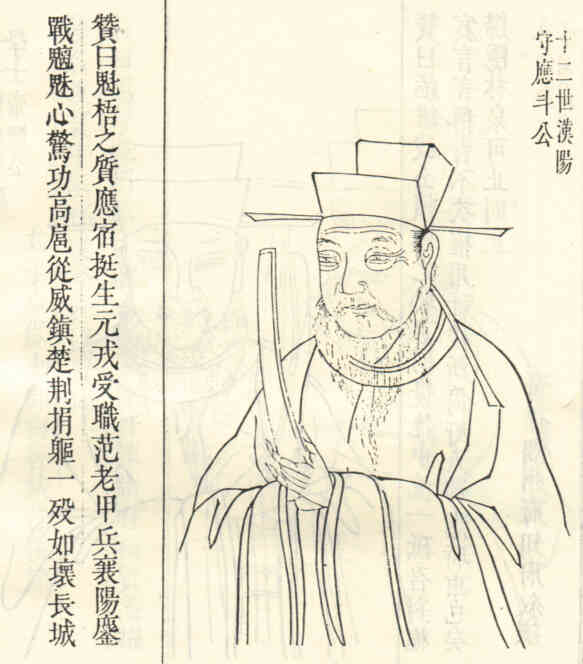 十二世漢陽
守應斗公
贊曰魁梧之質應宿挺生元戎受職范老甲兵襄陽鏖
戰魑魅心驚功高扈從威鎮楚荆捐軀一歿如壞長城